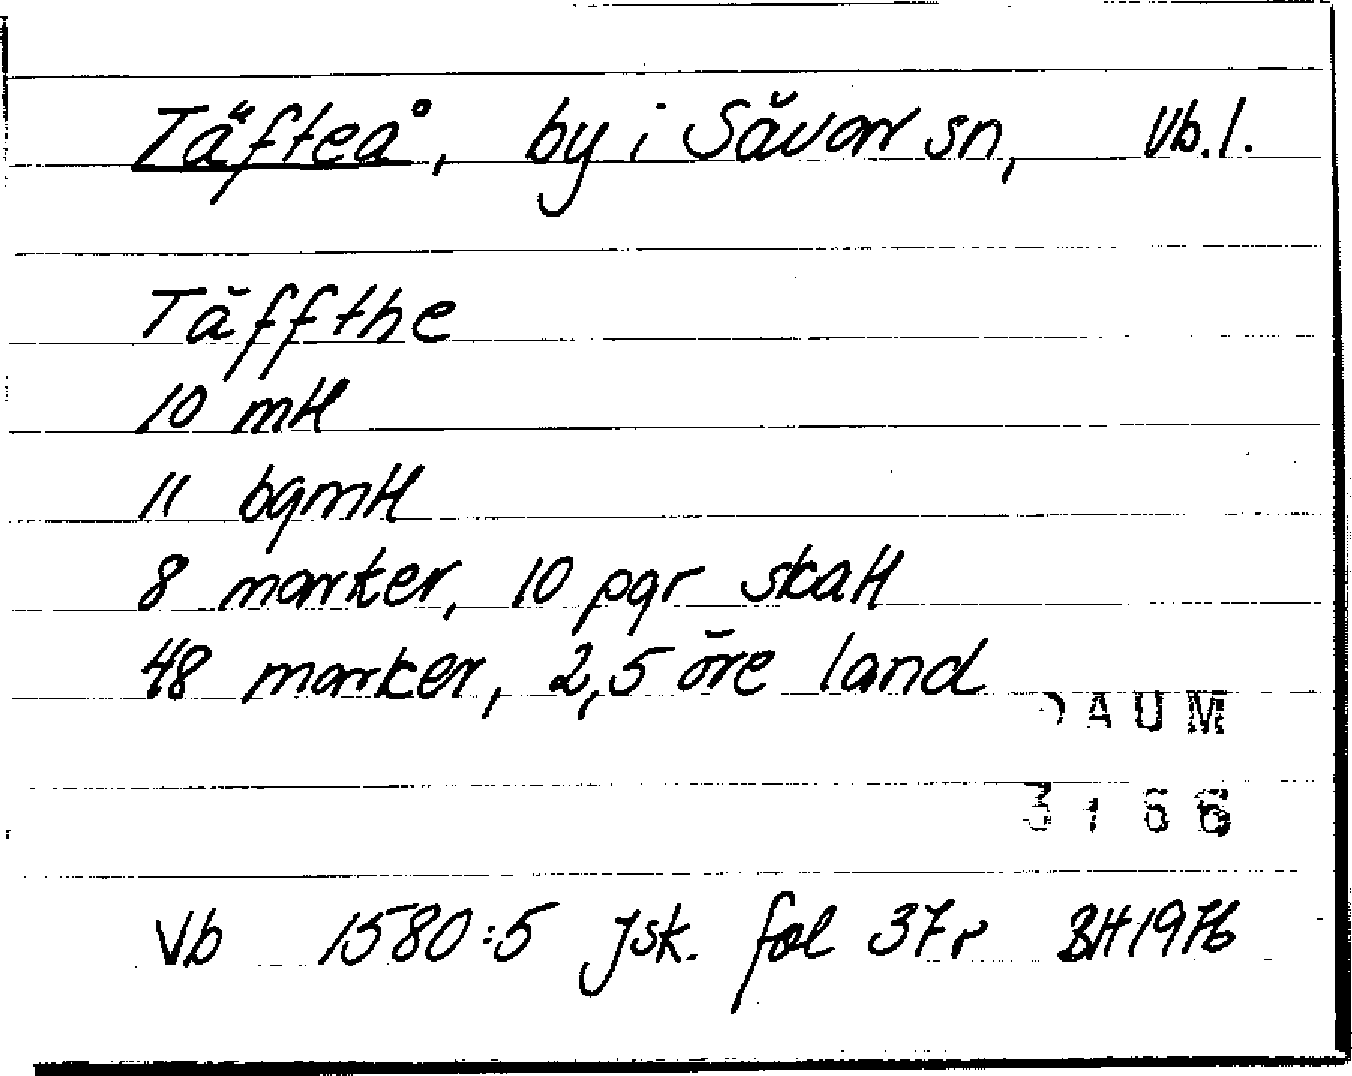 Täfteå, by i Sävar sn, Vb.l.
Täffthe
10 mtl
11 bgmtl
8 marker, 10 pgr skatt
48 marker, 2,5 öre land
DAUM
3166
Vb 1580:5 Jsk. fol 37r BH1976